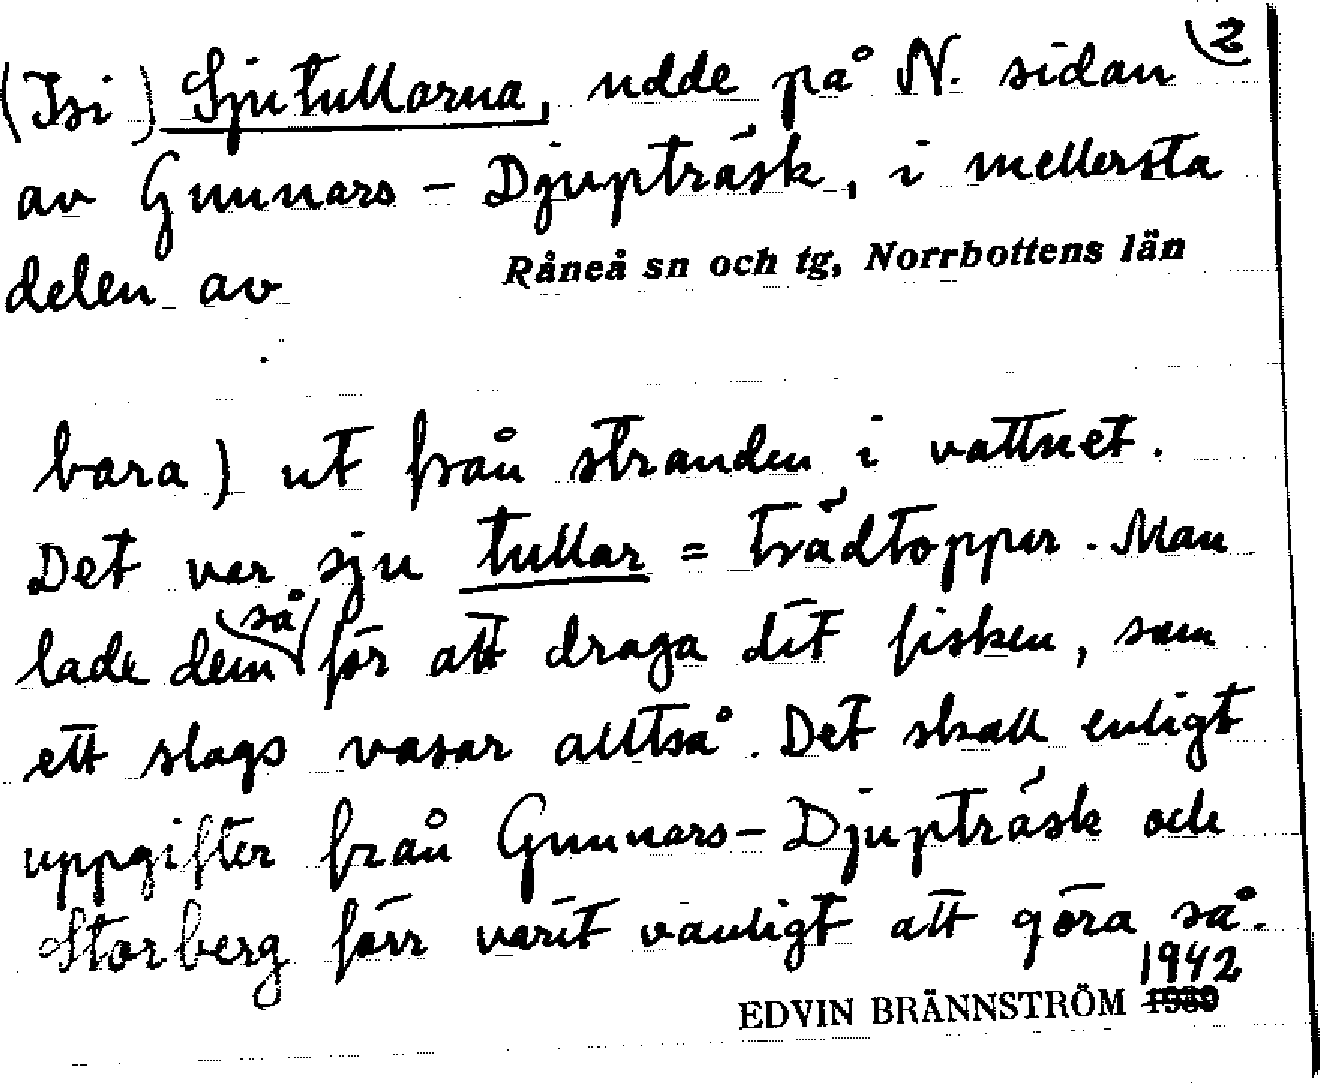 2
(Isi) Sjutullarna, udde på N. sidan
av Gunnars-Djupträsk, i mellersta
delen av Råneå sn och tg, Norrbottens län
bara) ut från stranden i vattnet.
Det var sju tullar = trädtopper. Man
lade dem så för att draga dit fisken, som
ett slags vasar alltså. Det skall enligt
uppgifter från Gunnars-Djupträsk och
Storberg förr varit vanligt att göra så.
1942
EDVIN BRÄNNSTRÖM 1930